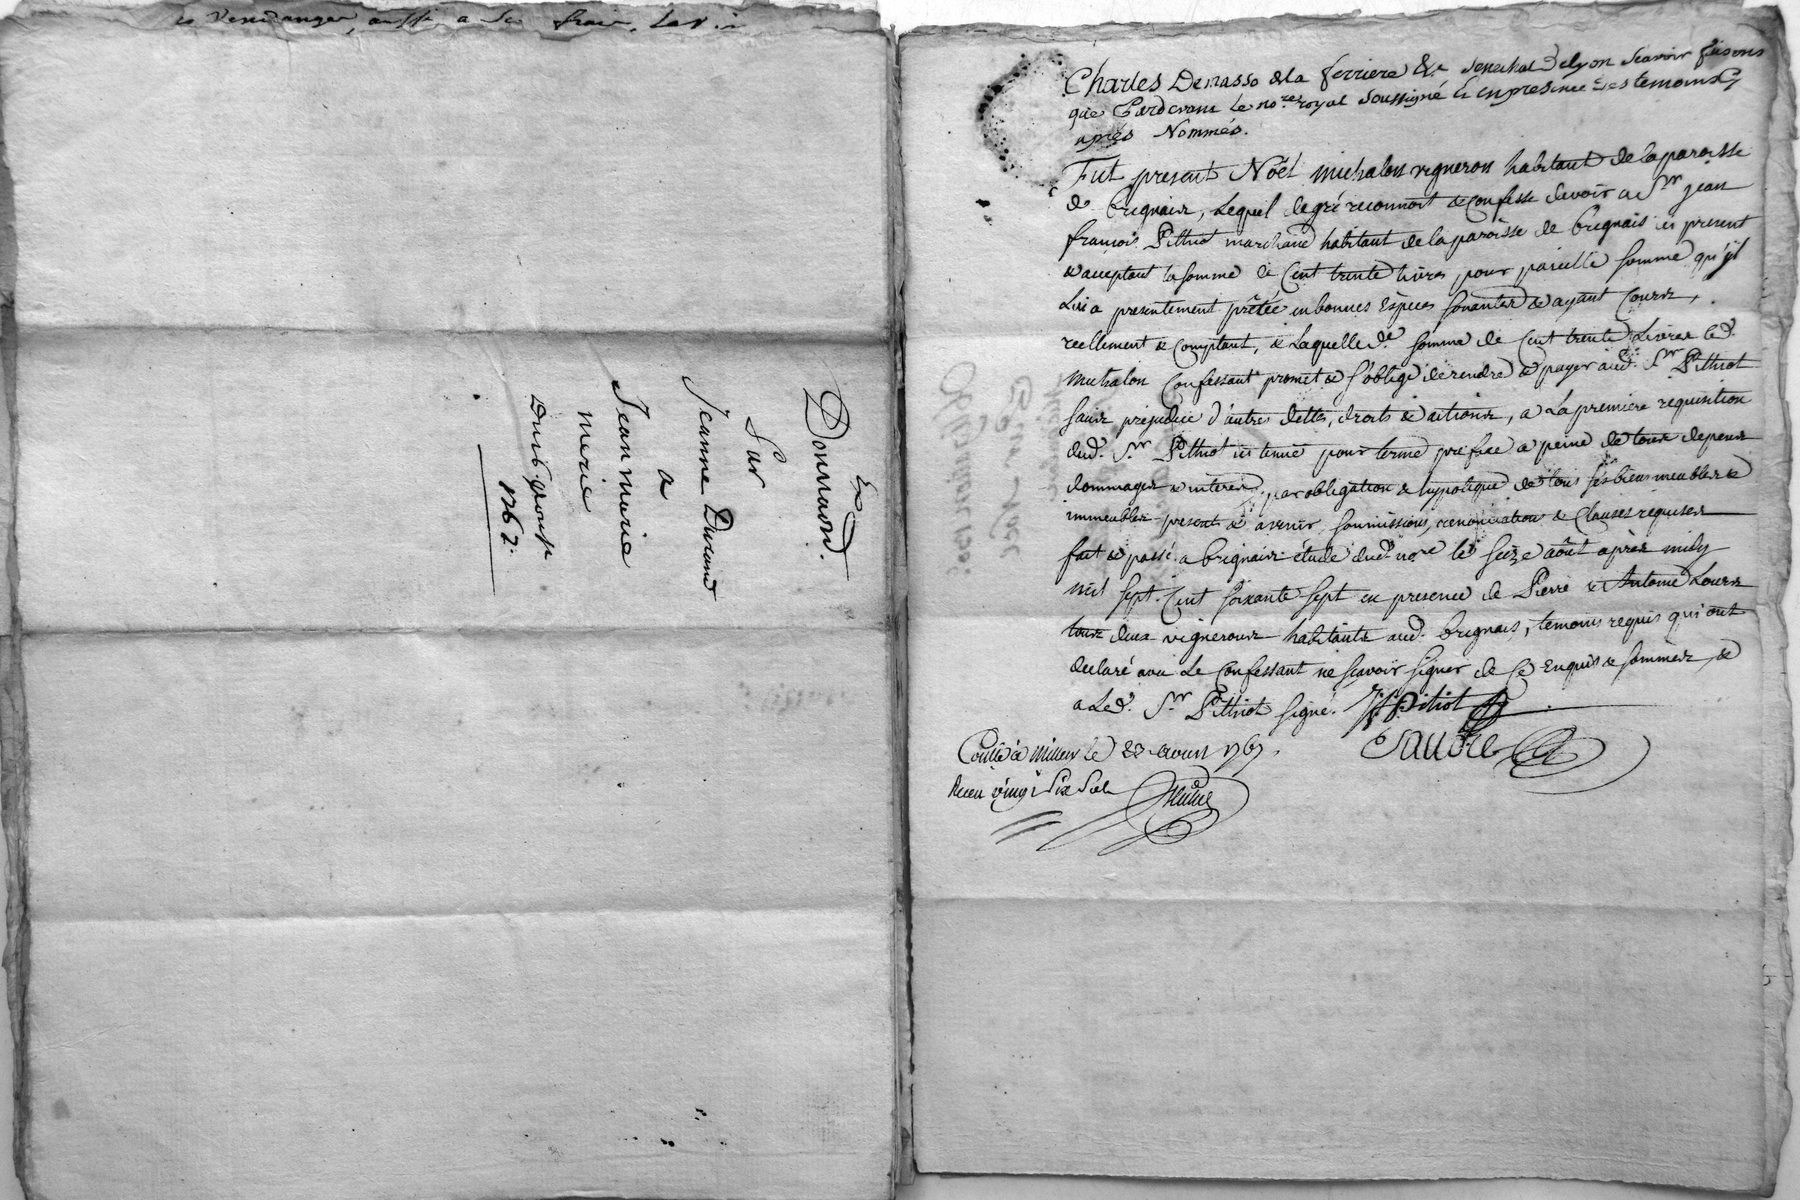 Vendanger, aussi a ses frais,
Ex.
Donnaon.
Sur
Jeanne Durand
a
Jean marie
merie
Du 16. aoust
1767.
Charles Demasso de la ferriere &c. senechal de lyon scavoir faisons
que Pardevant le no.re royal soussigné & en presence des temoins cy
après Nommés.
Fut present Noël michalon vigneron habitant de la paroisse
de Brignais, Lequel de gré reconnoit & confesse devoir a S.r jean
françois Pithiot marchand habitant de la paroisse de brignais ici present
& acceptant la somme de Cent trente livres pour pareille somme qu'jl
Lui a presentement prêtée en bonnes Espèces sonantes & ayant Cours,
reellement & Comptant, & Laquelle d.e somme de Cent trente Livres led.
michalon Confessant promet & s'oblige de rendre & payer aud. S.r Pithiot
sans prejudice d'autres dettes, droits & actions, a La premiere requisition
dud. S.r Pithiot ici tenue pour terme prefixe a peine de tous depens
dommages & interets, par obligation & hypotheque de tous ses biens meubles &
immeubles presents & avenir, soumissions, renonciation & Clauses requises
fait & passé a brignais étude dud. no.re le seize août après midy
mil sept Cent soixante sept en presence de Pierre & Antoine Lours
tous deux vignerons habitants aud. brignais, temoins requis qui ont
declaré avec Le Confessant ne scavoir signer de Ce Enquis & sommés, &
a Led. S.r Pithiot signé. Pithiot
Contlé à Millery le 23 aoust 1767.
Receu vingt six sols